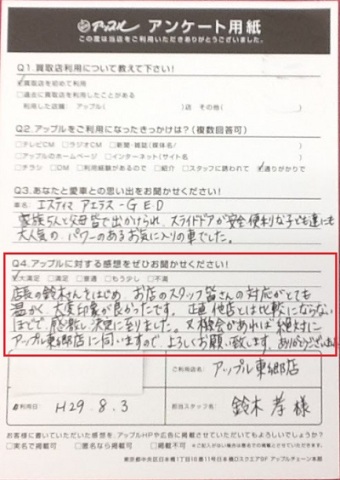 アップル アンケート用紙
この度は当店をご利用いただきありがとうございました。
Q1.買取店利用について教えて下さい!
買取店を初めて利用
□過去に買取店を利用したことがある
利用した店舗: アップル( )店 その他( )
Q2.アップルをご利用になったきっかけは?(複数回答可)
□テレビCM □ラジオCM □新聞・雑誌(媒体名/ )
□アップルのホームページ □インターネット(サイト名 )
□チラシ □DM □利用経験があるので □紹介 □スタッフに誘われて 通りがかりで
Q3.あなたと愛車との思い出をお聞かせください!
車名: エスティマ アエラス-GED
家族5人と父母皆で出かけられ、スライドドアが安全便利な子ども達にも
大人気の、パワーのあるお気に入りの車でした。
Q4.アップルに対する感想をぜひお聞かせください!
大満足 □満足 □普通 □もう少し □不満
店長の鈴木さんをはじめ お店のスタッフ皆さんの対応がとても
温かく 大変印象が良かったです。正直 他店とは比較にならない
ほどで 感激し 決定に至りました。又機会があれば 絶対に
アップル東郷店に伺いますので よろしくお願い致します。ありがとうございました
ご利用店名 アップル東郷店
ご利用日 H29.8.3
担当スタッフ名 鈴木 孝 様
お客様に書いていただいた感想を、アップルHPや広告に掲載させていただいてもよろしいでしょうか?
□実名で掲載可 □匿名なら掲載可 □掲載不可
東京都中央区日本橋1丁目16番11号日本橋Dスクエア5F アップルチェーン本部